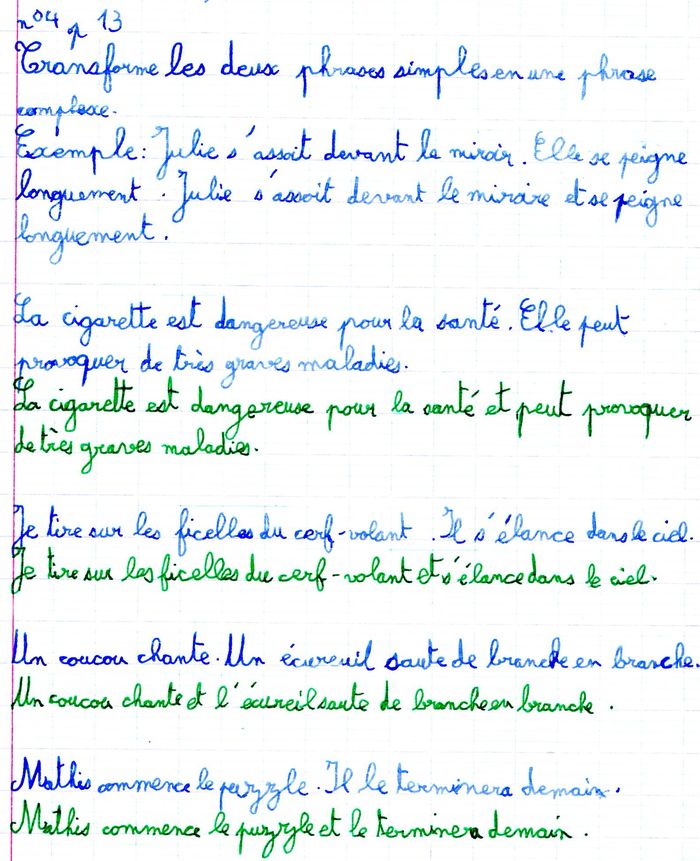 n°4 p 13
Transforme les deux phrases simples en une phrase
complexe.
Exemple: Julie s'assoit devant le miroir. Elle se peigne
longuement. Julie s'assoit devant le miroire et se peigne
longuement.
La cigarette est dangereuse pour la santé. Elle peut
provoquer de très graves maladies.
La cigarette est dangereuse pour la santé et peut provoquer
de très graves maladies.
Je tire sur les ficelles du cerf-volant. Il s'élance dans le ciel.
Je tire sur les ficelles du cerf-volant et s'élance dans le ciel.
Un coucou chante. Un écureuil saute de branche en branche.
Un coucou chante et l'écureil saute de branche en branche.
Mathis commence le puzzle. Il le terminera demain.
Mathis commence le puzzle et le terminera demain.